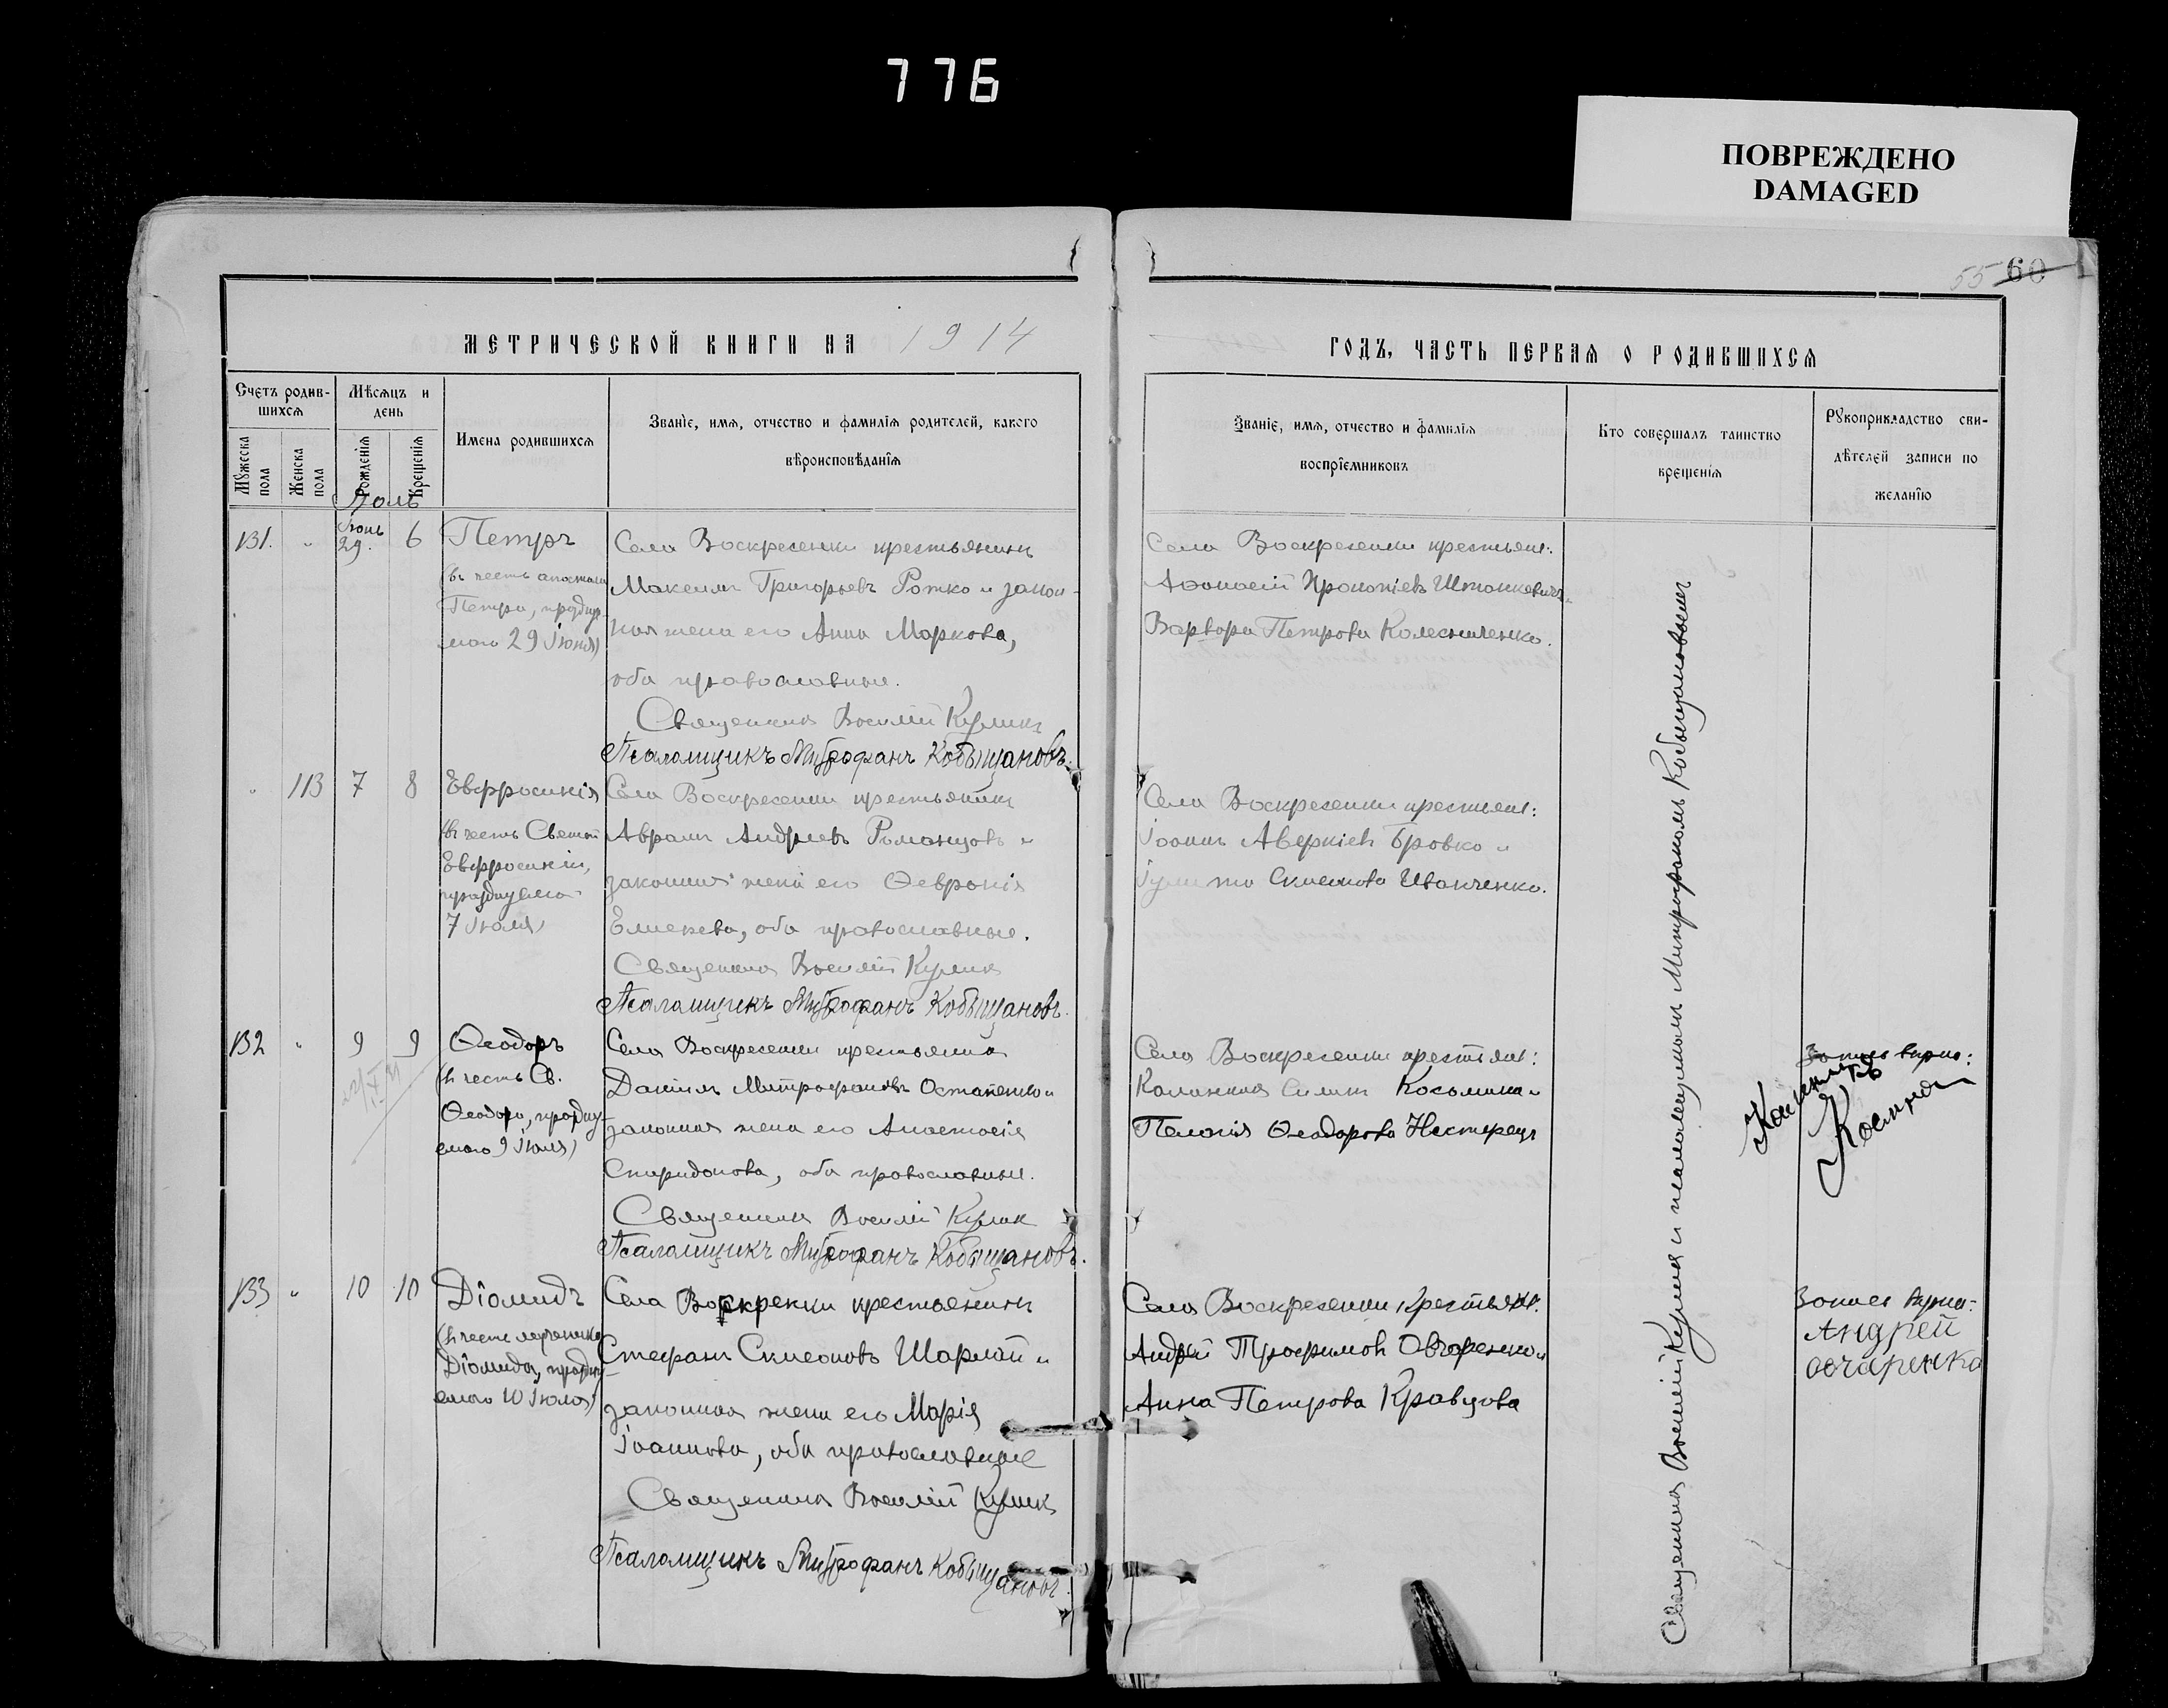 776
ПОВРЕЖДЕНО
DAMAGED
55 60
МЕТРИЧЕСКОЙ КНИГИ НА 1914
ГОДЪ, ЧАСТЬ ПЕРВАЯ О РОДИВШИХСЯ
Счетъ родив-
шихся
Мѣсяцъ и
день
Мужеска
пола
Женска
пола
Рожденія
Крещенія
Имена родившихся
Званіе, имя, отчество и фамилія родителей, какого
вѣроисповѣданія
Званіе, имя, отчество и фамилія
воспріемниковъ
Кто совершалъ таинство
крещенія
Рукоприкладство сви-
дѣтелей записи по
желанію
Іюль
131. " Іюнь 29. 6
Петръ
(въ честь апостола
Петра, праздну-
емаго 29 Іюня)
Села Воскресенки крестьянинъ
Максимъ Григорьевъ Рожко и закон-
ная жена его Анна Маркова,
оба православные.
Священникъ Василій Куликъ
Псаломщикъ Митрофанъ Кобыщановъ.
Села Воскресенки крестьян:
Афанасій Прокопіевъ
Варвара Петрова Колесниченко.
" 113 7 8
Евфросинія
(въ честь Святой
Евфросиніи,
празднуемой
7 Іюля)
Села Воскресенки крестьянинъ
Аврамъ Андреевъ Романцовъ и
законная жена его Февронія
Елисеева, оба православные.
Священникъ Василій Куликъ
Псаломщикъ Митрофанъ Кобыщановъ.
Села Воскресенки крестьян:
Іоаннъ Аверкіевъ Бровко и
Іулитта Симеонова Иванченко.
132 " 9 9
Ѳеодоръ
(въ честь Св.
Ѳеодора, праздну-
емаго 9 Іюля)
Села Воскресенки крестьянинъ
Даніилъ Митрофановъ Остапенко и
законная жена его Анастасія
Спиридонова, оба православные.
Священникъ Василій Куликъ
Псаломщикъ Митрофанъ Кобыщановъ.
Села Воскресенки крестьян:
Каллиникъ Косьмина и
Пелагія Ѳеодорова Нестерецъ
Запись вѣрно:
133 " 10 10
Діомидъ
(въ честь мученика
Діомида, праздну-
емаго 10 Іюля)
Села Воскресенки крестьянинъ
Стефанъ Симеоновъ Шарлай и
законная жена его Марія
Іоаннова, оба православные
Священникъ Василій Куликъ
Псаломщикъ Митрофанъ Кобыщановъ.
Села Воскресенки крестьян:
Андрей Трофимовъ Овчаренко и
Анна Петрова Кравцова
Запись вѣрна:
Андрей
овчаренко
Священникъ Василій Куликъ и псаломщикомъ Митрофаномъ Кобыщановымъ